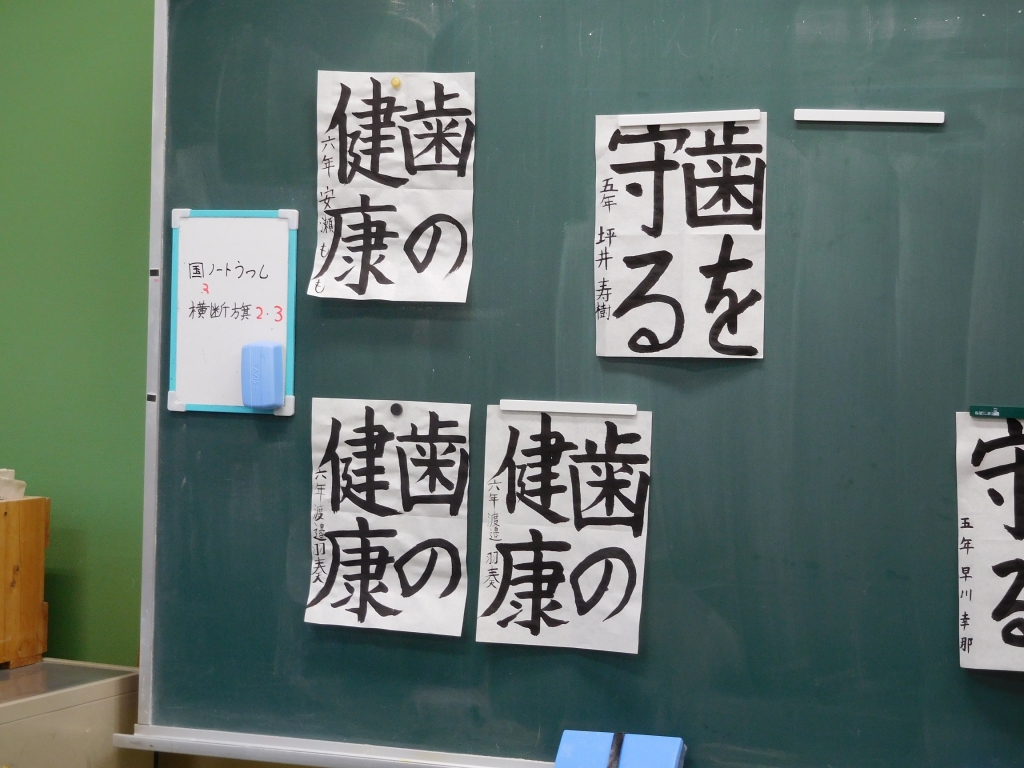 国ノートうつし
横断旗2・3
歯の
健康
六年 安瀬 もも
歯を
守る
五年 坪井 寿樹
歯の
健康
六年 渡邉 羽奏
歯の
健康
六年 渡邉 羽奏
守る
五年 早川 幸那